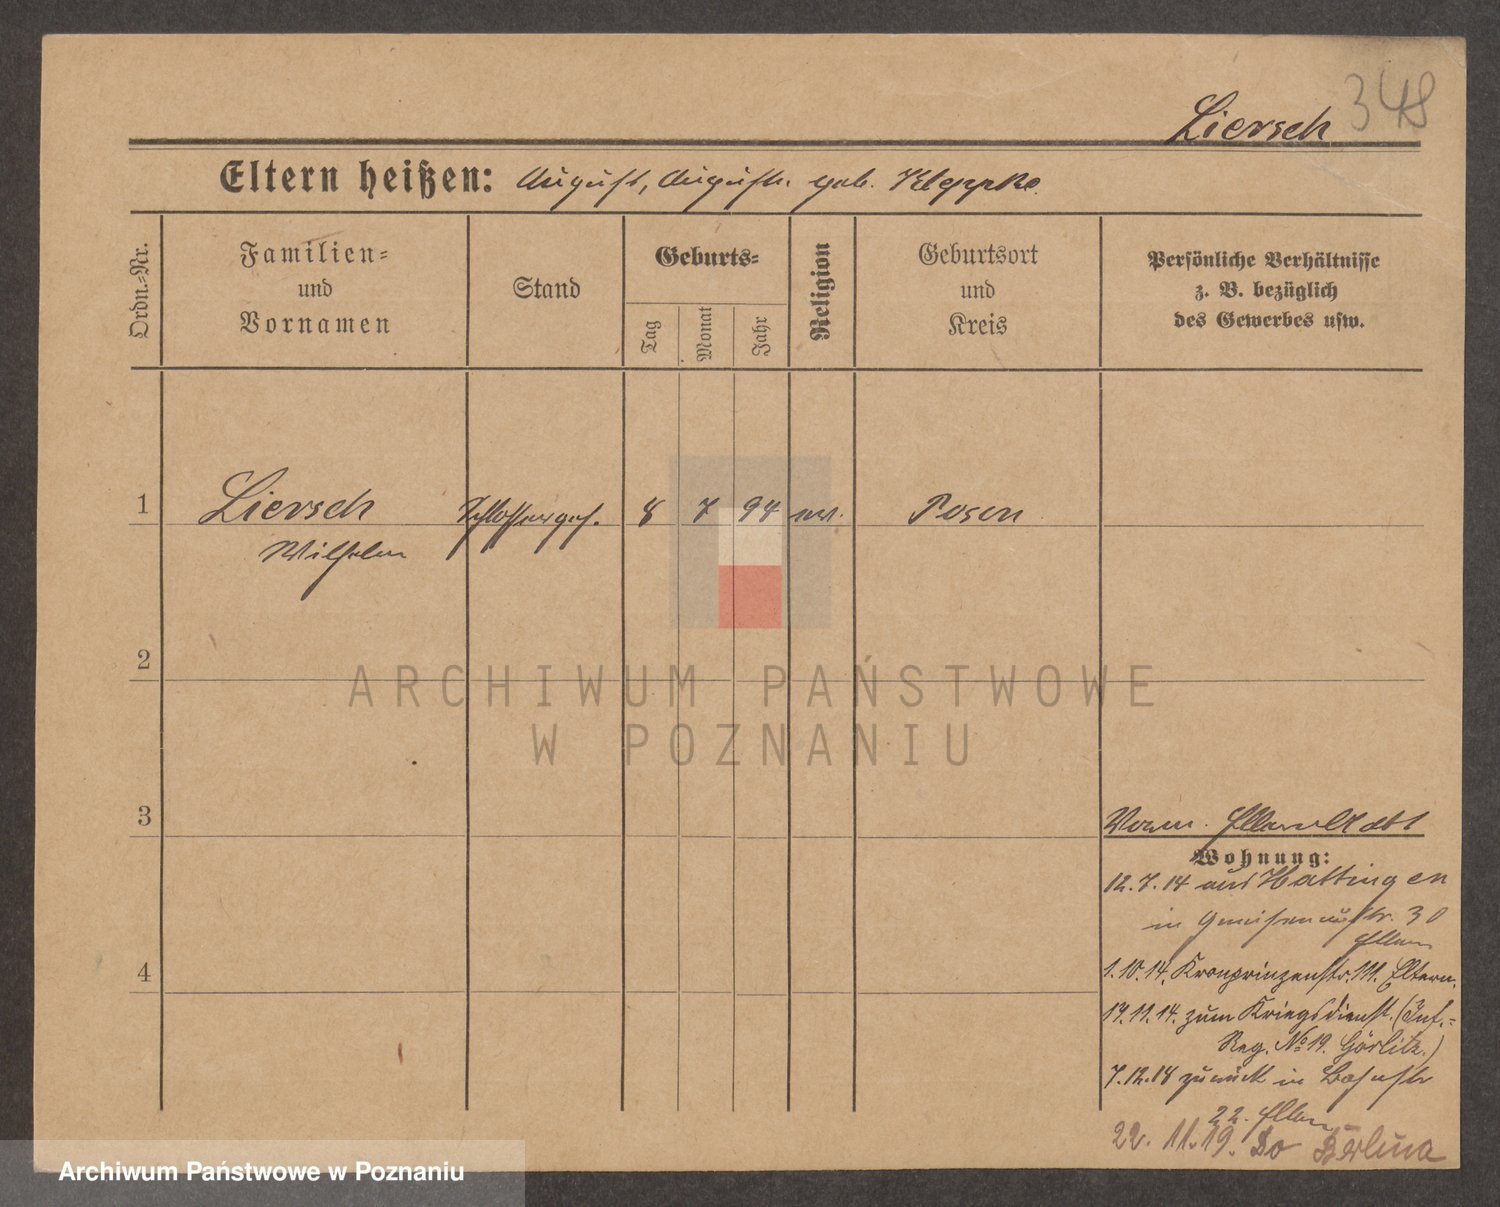 Liersch 348
Eltern heißen: August, August. geb. Kleppke
Ordn.=Nr.
Familien=
und
Vornamen
Stand
Geburts=
Tag
Monat
Jahr
Religion
Geburtsort
und
Kreis
Persönliche Verhältnisse
z. B. bezüglich
des Gewerbes usw.
1 Liersch Schlosserges. 8 7 94 ev. Posen
Wilhelm
2
ARCHIWUM PAŃSTWOWE
W POZNANIU
3
Wohnung:
12.7.14 aus Hattingen
in Gneisenaustr. 30
Eltern
4
1.10.14. Kronprinzenstr. 111. Eltern.
17.11.14. zum Kriegsdienst. (Inf.=
Reg. No 19. Görlitz.)
7.12.18 zurück in
22. Eltern
22.11.19. Do Berlina
Archiwum Państwowe w Poznaniu